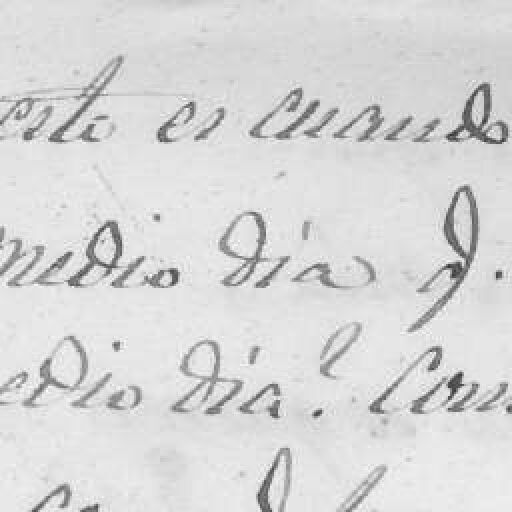 esto es cuando
medio día y.
edio día. Com